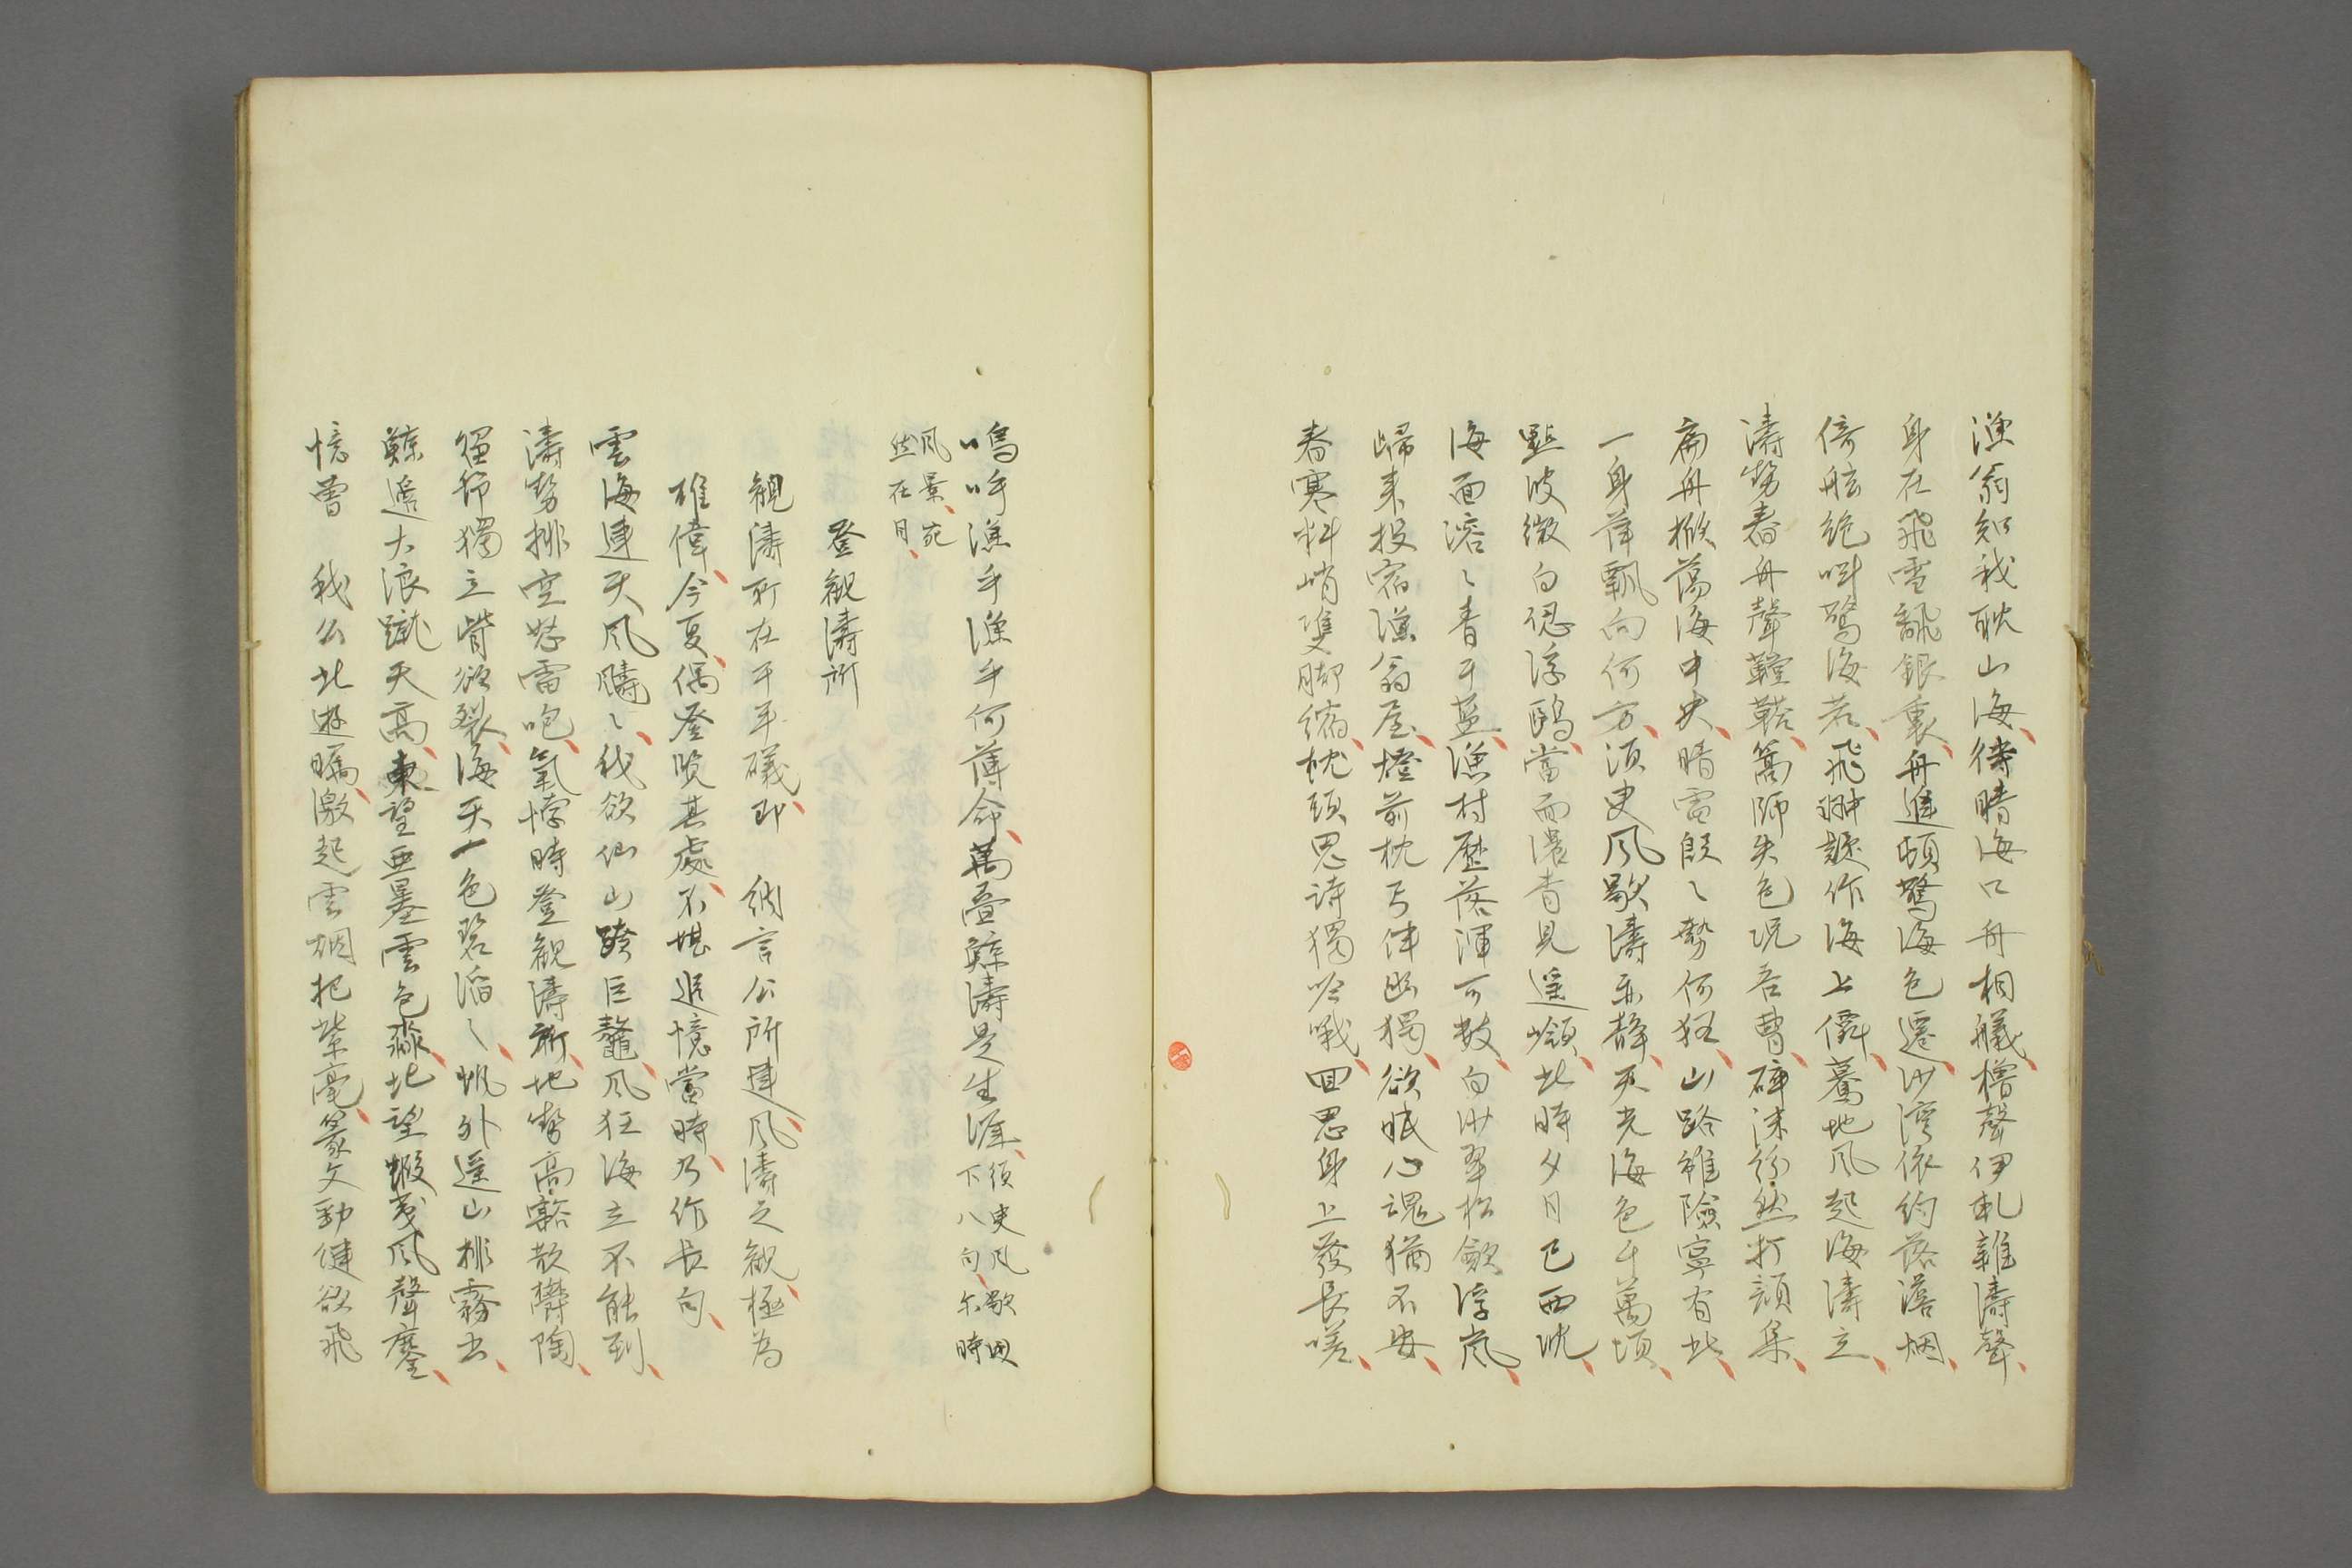 漁翁知我耽山海待晴海口舟相艤櫓聲伊軋雜濤聲
身在飛雪飜銀裏舟進頓驚海色遷沙湾依約落落烟
倚舷絶叫驚海若飛翀疑作海上僊驀地風起海濤立
濤勢舂舟聲鞺鞳篙師失色况吾曹碎沫紛然打頭集
扁舟撇蕩海中央晴雷殷〻勢何狂山路雖險寧有此
一身萍飄向何方須臾風歇濤亦靜天光海色千萬頃
點波微白認浮鷗當面濃青見遥嶺此時夕日已西沈
海面溶〻青于藍漁村歷落渾可数白沙翠松歛浮嵐
歸来投宿漁翁屋燈前枕弓伴幽獨欲眠心魂猶不安
春寒料峭雙脚縮枕頭思詩獨吟哦回思身上發長嗟
嗚呼漁乎漁乎何薄命萬疊鯨濤是生涯須臾風歇
下八句尓時
風景宛
然在目
登観濤所
観濤所在于平磯即 納言公所建風濤之観極為
雄偉今夏偶登覧其處不堪追憶當時乃作長句
雲海連天風濤〻我欲仙山跨巨鼇風狂海立不能到
濤勢排空怒雷咆氣悸時登観濤所地勢高豁散欝陶
倔節獨立眥欲裂海天一色碧滔〻帆外遥山排霧出
鯨遁大浪蹴天高東望亜墨雲色淼北望蝦夷風聲鏖
憶曽 我公此遊矚激起雲烟把紫毫篆文勁健欲飛